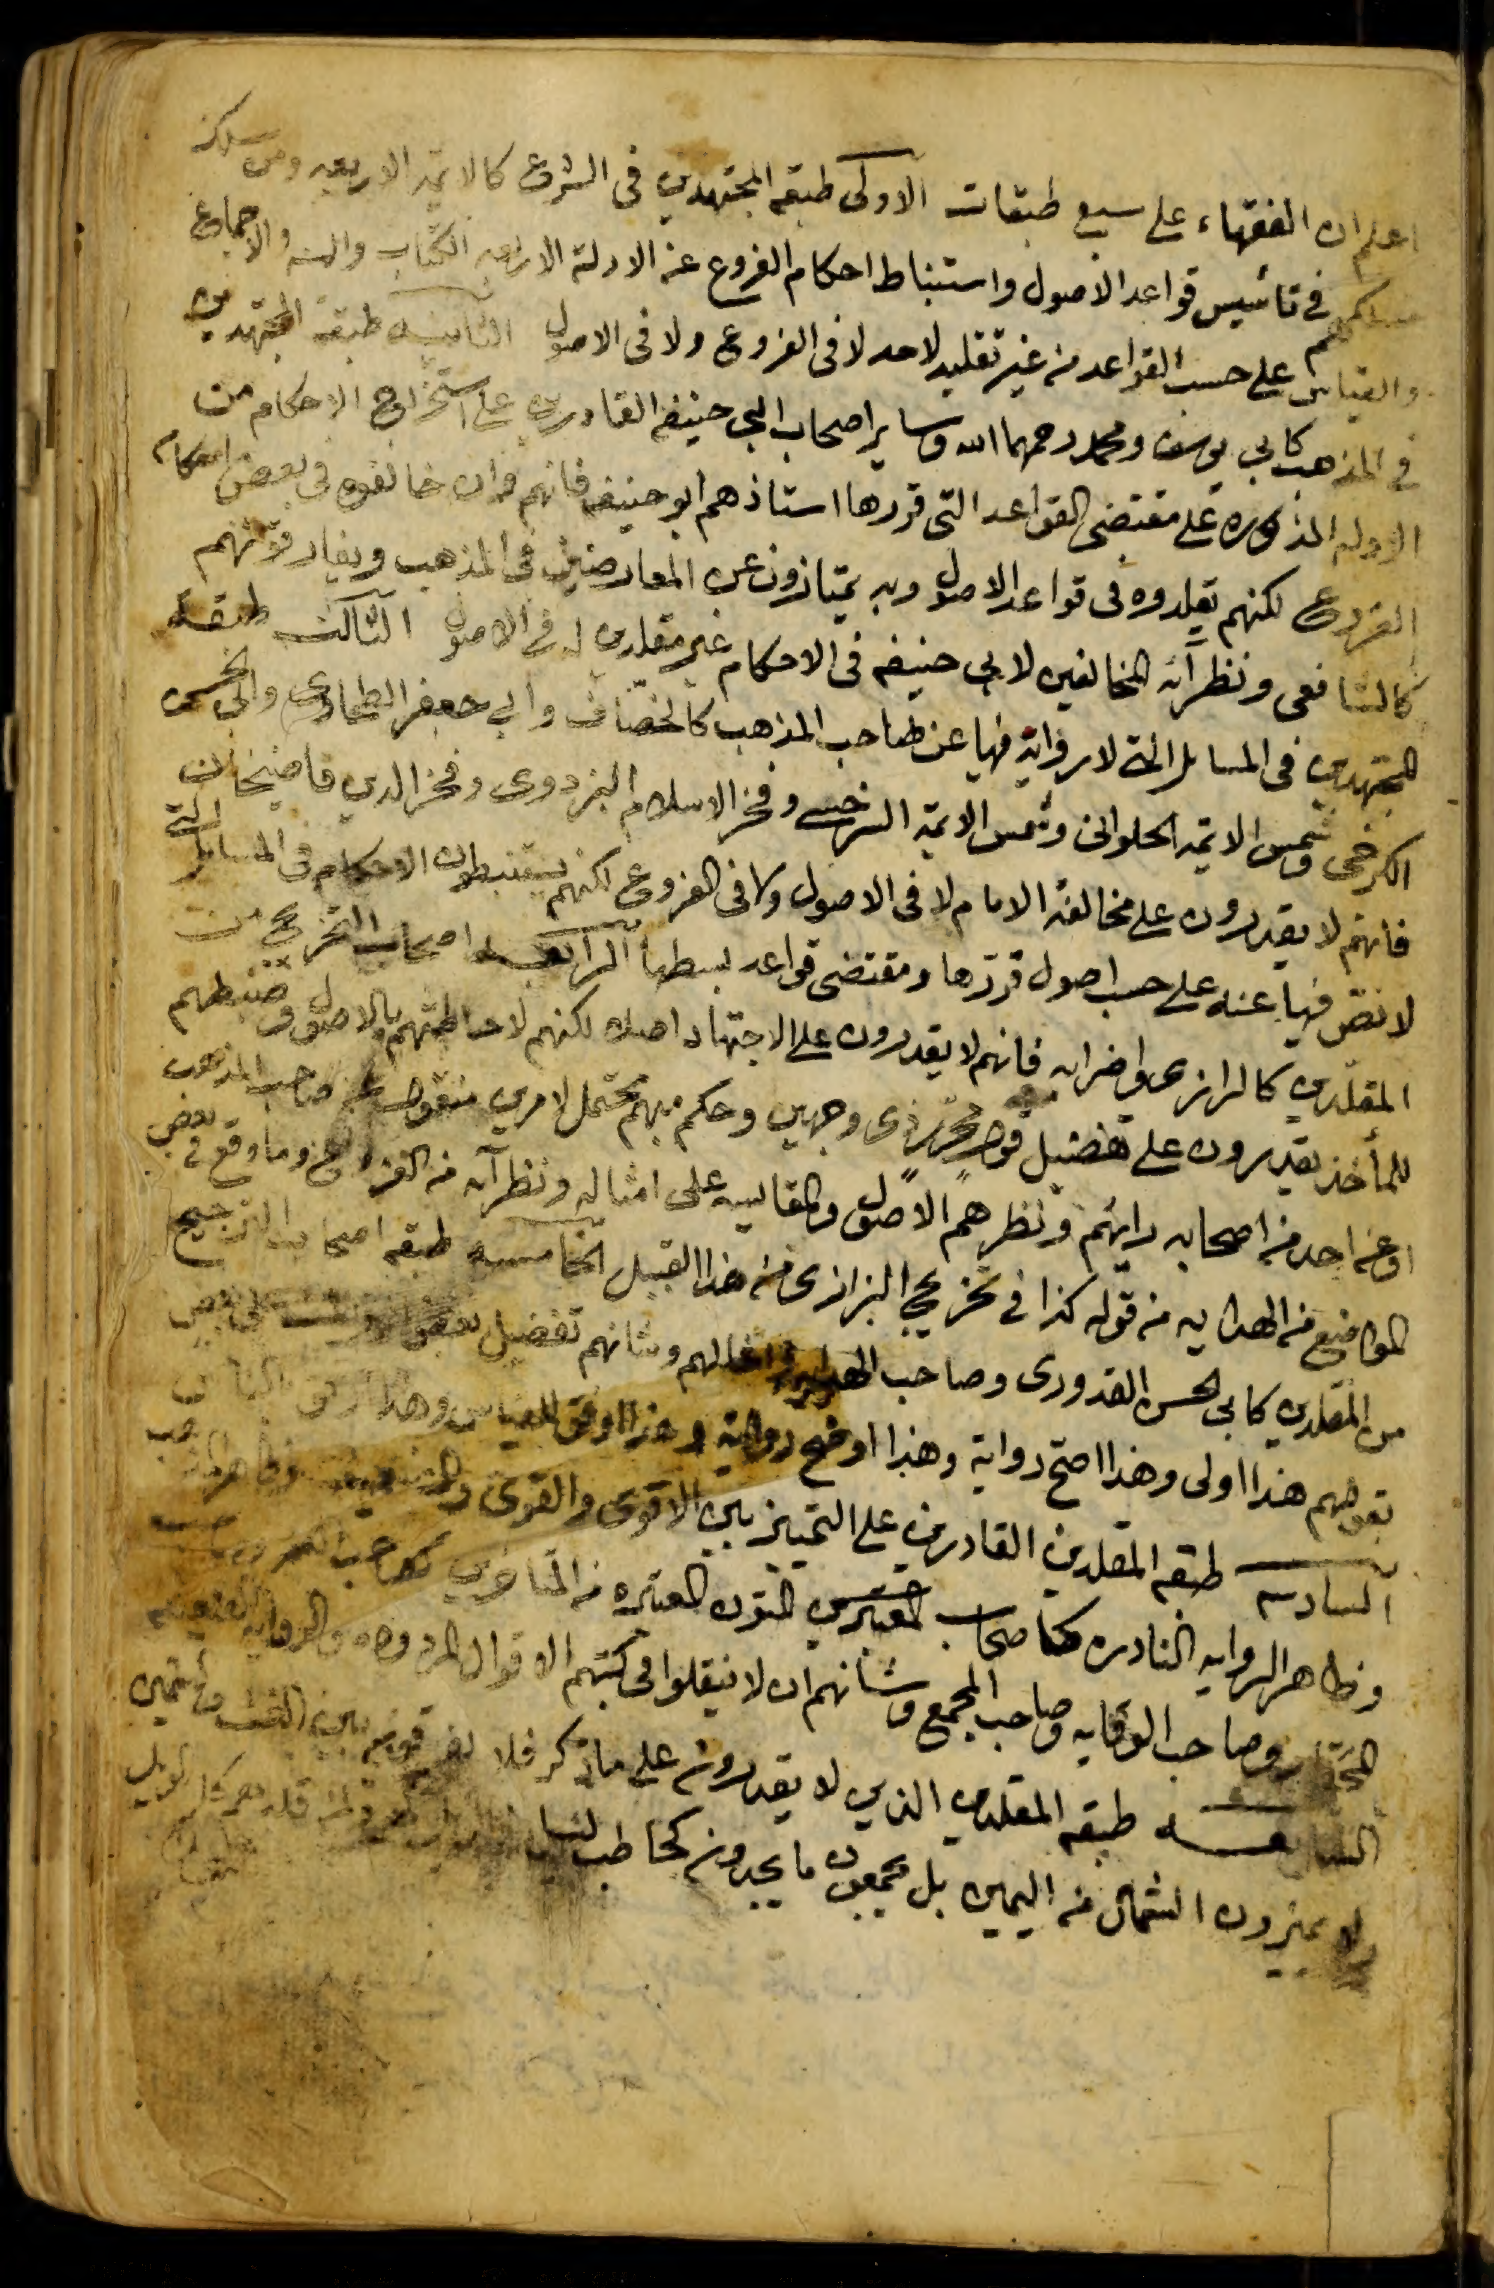 اعلم ان الفقهاء على سبع طبقات الاولى طبقة المجتهدين فى الشرع كالائمة الاربعه ومن سلك
مسلكهم فى تأسيس قواعد الاصول واستنباط احكام الفروع عن الادلة الاربعه الكتاب والسنه والاجماع
والقياس على حسب القواعد من غير تقليد لاحد لا فى الفروع ولا فى الاصول الثانيه طبقة المجتهدين
فى المذهب كابى يوسف ومحمد رحمهما الله وساير اصحاب ابى حنيفه القادرين على استخراج الاحكام من
الادله المذكوره على مقتضى القواعد التى قررها استاذهم ابو حنيفه فانهم وان خالفوه فى بعض احكام
الفروع لكنهم يقلدوه فى قواعد الاصول وبه يمتازون عن المعارضين فى المذهب ويفارقونهم
كالشافعى ونظرآئه المخالفين لابى حنيفه فى الاحكام غير مقلدين له فى الاصول الثالثه طبقة
المجتهدين فى المسايل التى لا رواية فيها عن صاحب المذهب كالخصّاف وابى جعفر الطحاوى وابى الحسن
الكرخى وشمس الائمه الحلوانى وشمس الائمة السرخسى وفخر الاسلام البزدوى وفخر الدين قاضيخان
فانهم لا يقدرون على مخالفة الامام لا فى الاصول ولا فى الفروع لكنهم يستنبطون الاحكام فى المسايل التى
لا نصّ فيها عنه على حسب اصول قرّرها ومقتضى قواعد بسطها الرابعه اصحاب التخريج من
المقلّدين كالرازى واضرابه فانهم لا يقدرون على الاجتهاد اصلا لكنهم لاحاطتهم بالاصول وضبطهم
للمأخذ يقدرون على تفضيل قول مجمل ذى وجهين وحكم مبهم محتمل لامرين منقول عن صاحب المذهب
او عن احد من اصحابه برايهم ونظرهم الاصول والمقايسه على امثاله ونظرآئه من الفروع وما وقع فى بعض
المواضع من الهدايه من قوله كذا فى تخريج الرازى من هذا القبيل الخامسه طبقه اصحاب الترجيح
من المقلدين كابى الحسن القدورى وصاحب الهدايه وامثالهم وشانهم تفضيل بعض الروايات على بعض
بقولهم هذا اولى وهذا اصحّ رواية وهذا اوضح رواية وهذا اوفق للقياس وهذا ارفق بالناس
السادسه طبقه المقلدين القادرين على التمييز بين الاقوى والقوى والضعيف وظاهر المذهب
وظاهر الروايه النادره كاصحاب المتون المعتبره من المتاخرين كصاحب الكنز وصاحب
المختار وصاحب الوقايه وصاحب المجمع وشانهم ان لا ينقلوا فى كتبهم الاقوال المردوده والروايه الضعيفه
السابعه طبقه المقلدين الذين لا يقدرون على ما ذكر فلا يفرقون بين الغث والسمين
ولا يميزون الشمال من اليمين بل يجمعون ما يجدون كحاطب ليل فالويل لهم ولمن قلدهم كل الويل